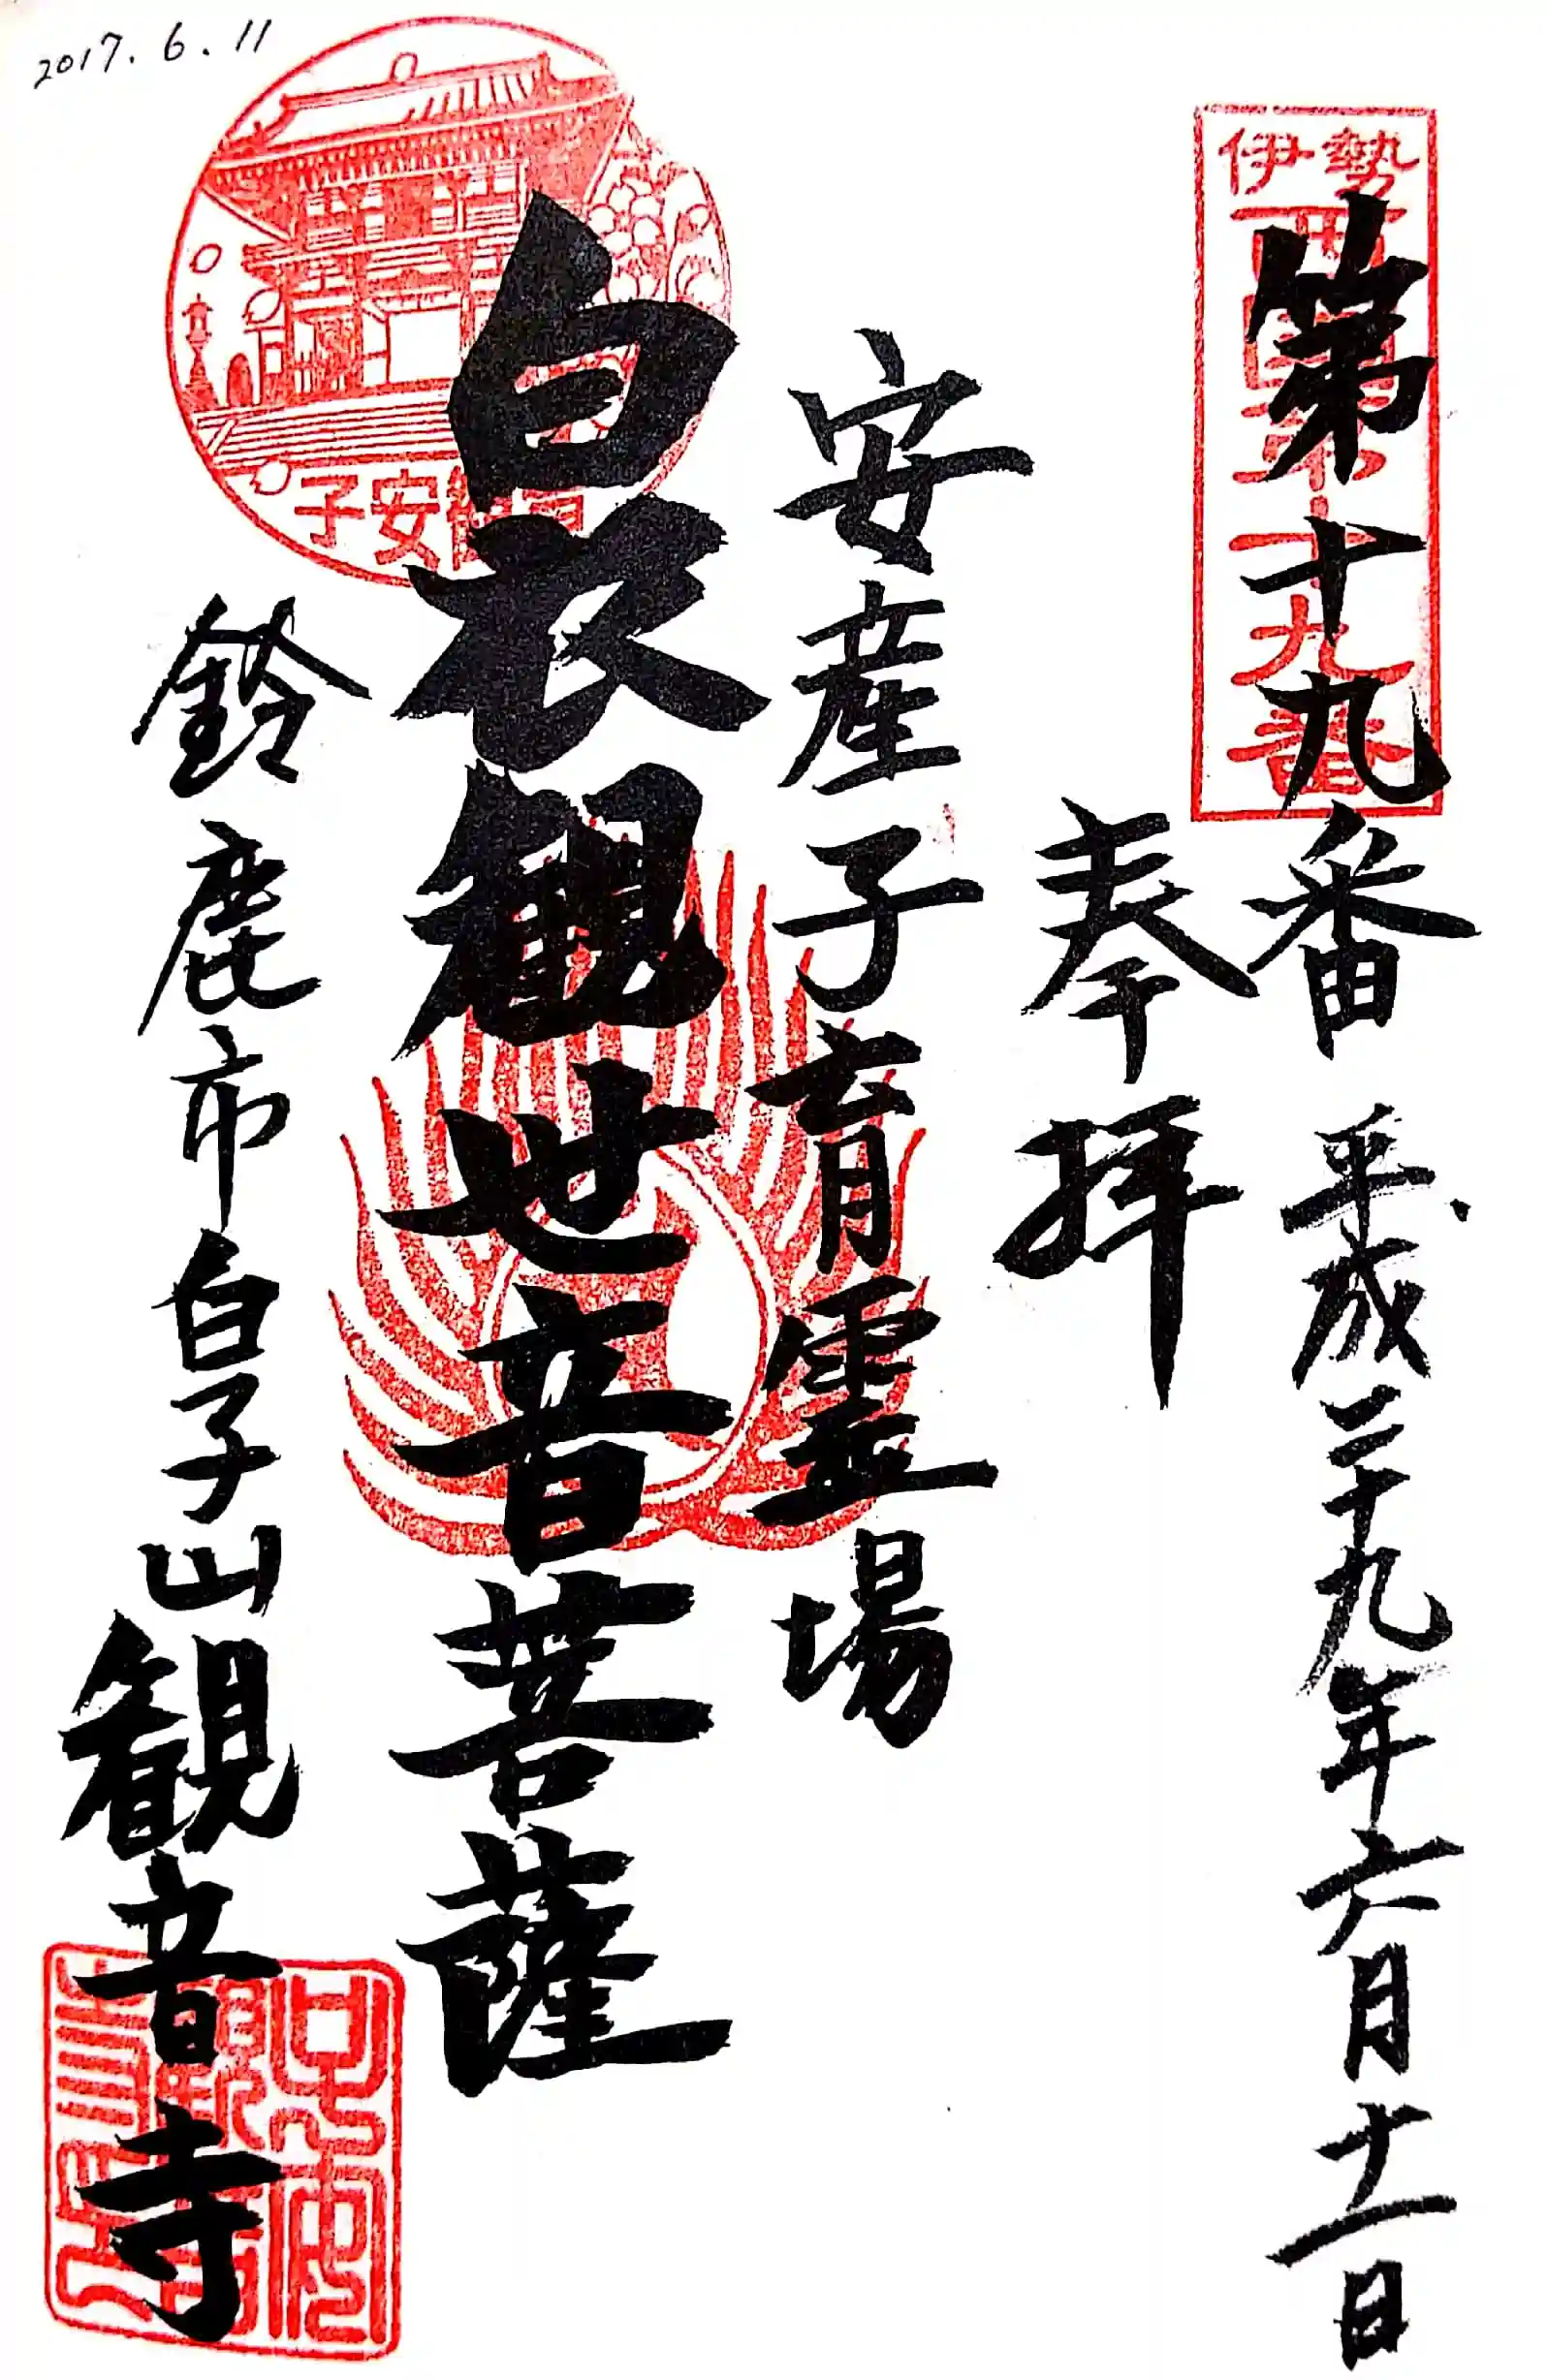 2017.6.11
伊勢
西国第
十九番
第十九番 平成二十九年六月十一日
奉拝
安産子育霊場
白衣観世音菩薩
子安観音
鈴鹿市白子山観音寺